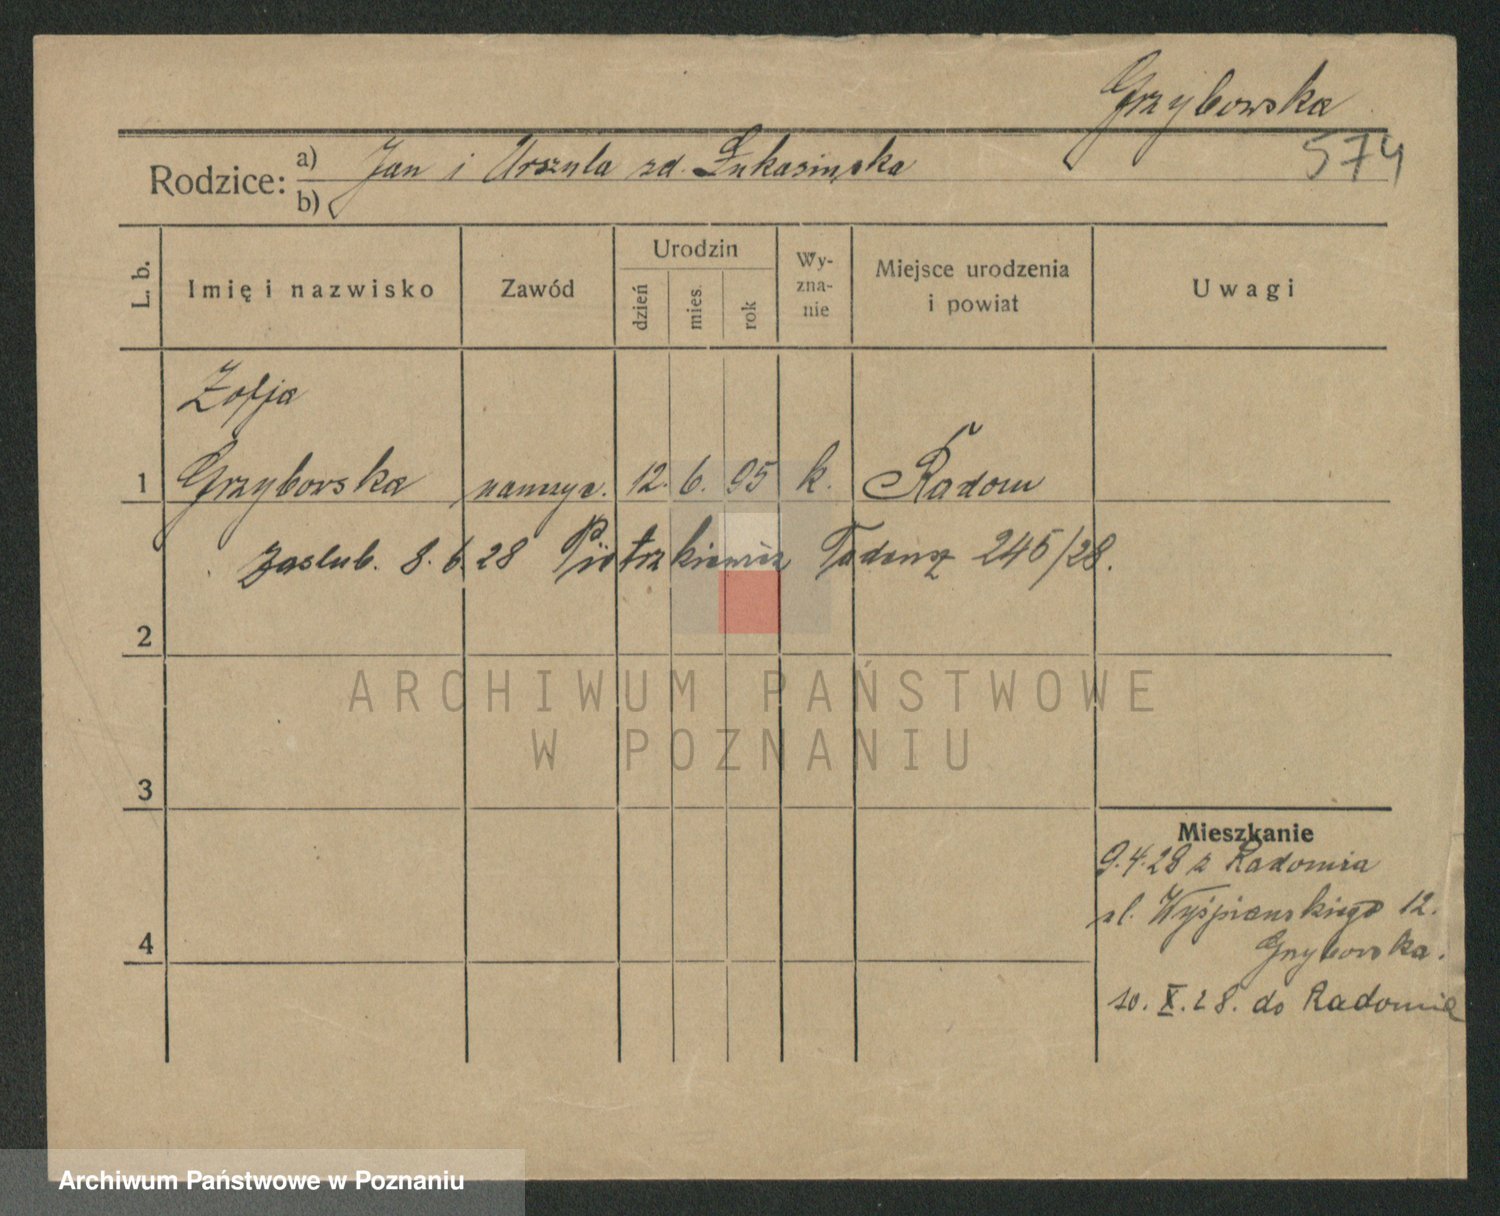 Grzybowska
574
Rodzice: a) Jan i Urszula zd. Łukasińska
b)
L. b.
Imię i nazwisko
Zawód
Urodzin
dzień
mies.
rok
Wy-
zna-
nie
Miejsce urodzenia
i powiat
Uwagi
Zofja
1 Grzybowska naucyc. 12. 6. 95 k. Radom
zaslub. 8. 6. 28 Piotrkiewicz Tadeusz 245/28.
2
ARCHIWUM PAŃSTWOWE
W POZNANIU
3
Mieszkanie
9.4.28 z Radomia
ul. Wyśpianskiego 12.
4
Grzybowska.
10. X. 28. do Radomia
Archiwum Państwowe w Poznaniu